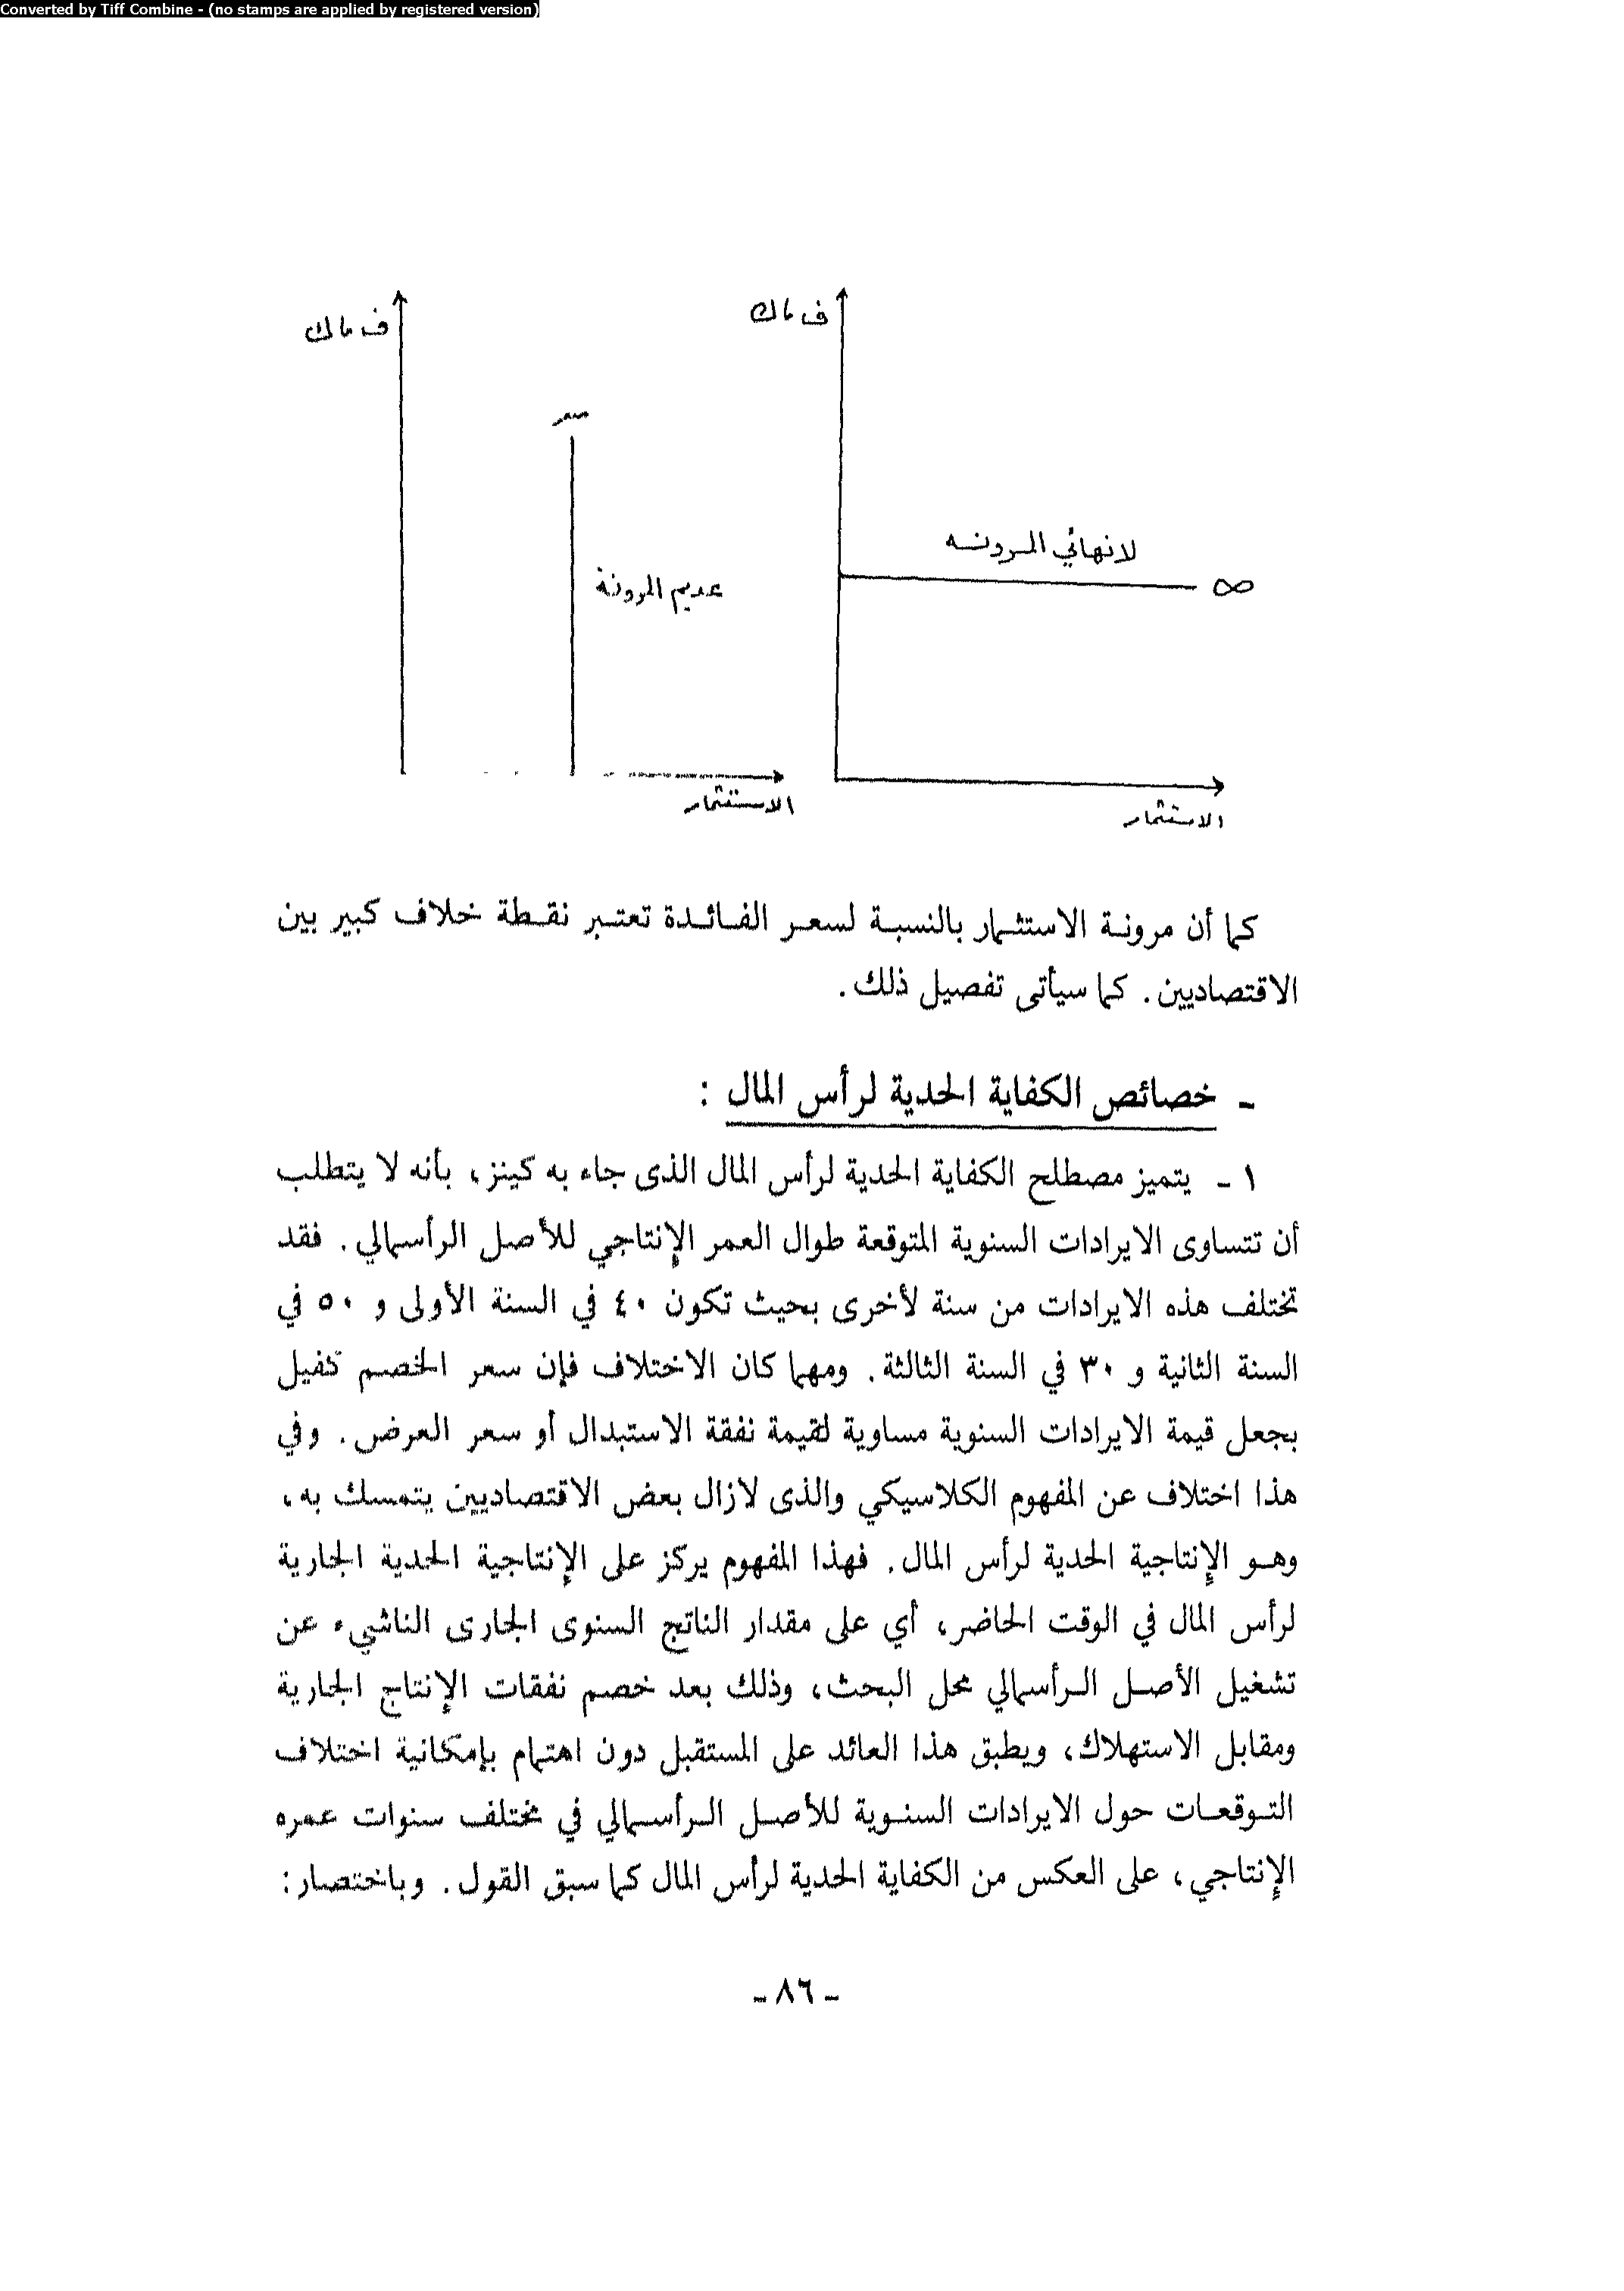 Converted by Tiff Combine - (no stamps are applied by registered version)
لانهائي المرونه
∞
الاستثمار
عديم المرونة
الاستثمار
كما أن مرونة الاستثمار بالنسبة لسعر الفائدة تعتبر نقطة خلاف كبير بين
الاقتصاديين. كما سيأتى تفصيل ذلك.
- خصائص الكفاية الحدية لرأس المال :
١ - يتميز مصطلح الكفاية الحدية لرأس المال الذى جاء به كينز، بأنه لا يتطلب
أن تتساوى الايرادات السنوية المتوقعة طوال العمر الإنتاجي للأصل الرأسمالي. فقد
تختلف هذه الايرادات من سنة لأخرى بحيث تكون ٤٠ في السنة الأولى و ٥٠ في
السنة الثانية و ٣٠ في السنة الثالثة. ومهما كان الاختلاف فإن سعر الخصم كفيل
بجعل قيمة الايرادات السنوية مساوية لقيمة نفقة الاستبدال أو سعر العرض. وفي
هذا اختلاف عن المفهوم الكلاسيكي والذى لازال بعض الاقتصاديين يتمسك به،
وهو الإنتاجية الحدية لرأس المال. فهذا المفهوم يركز على الإنتاجية الحدية الجارية
لرأس المال في الوقت الحاضر، أي على مقدار الناتج السنوى الجارى الناشيء عن
تشغيل الأصل الرأسمالي محل البحث، وذلك بعد خصم نفقات الإنتاج الجارية
ومقابل الاستهلاك، ويطبق هذا العائد على المستقبل دون اهتمام بإمكانية اختلاف
التوقعات حول الايرادات السنوية للأصل الرأسمالي في مختلف سنوات عمره
الإنتاجي، على العكس من الكفاية الحدية لرأس المال كما سبق القول. وباختصار:
- ٨٦ -